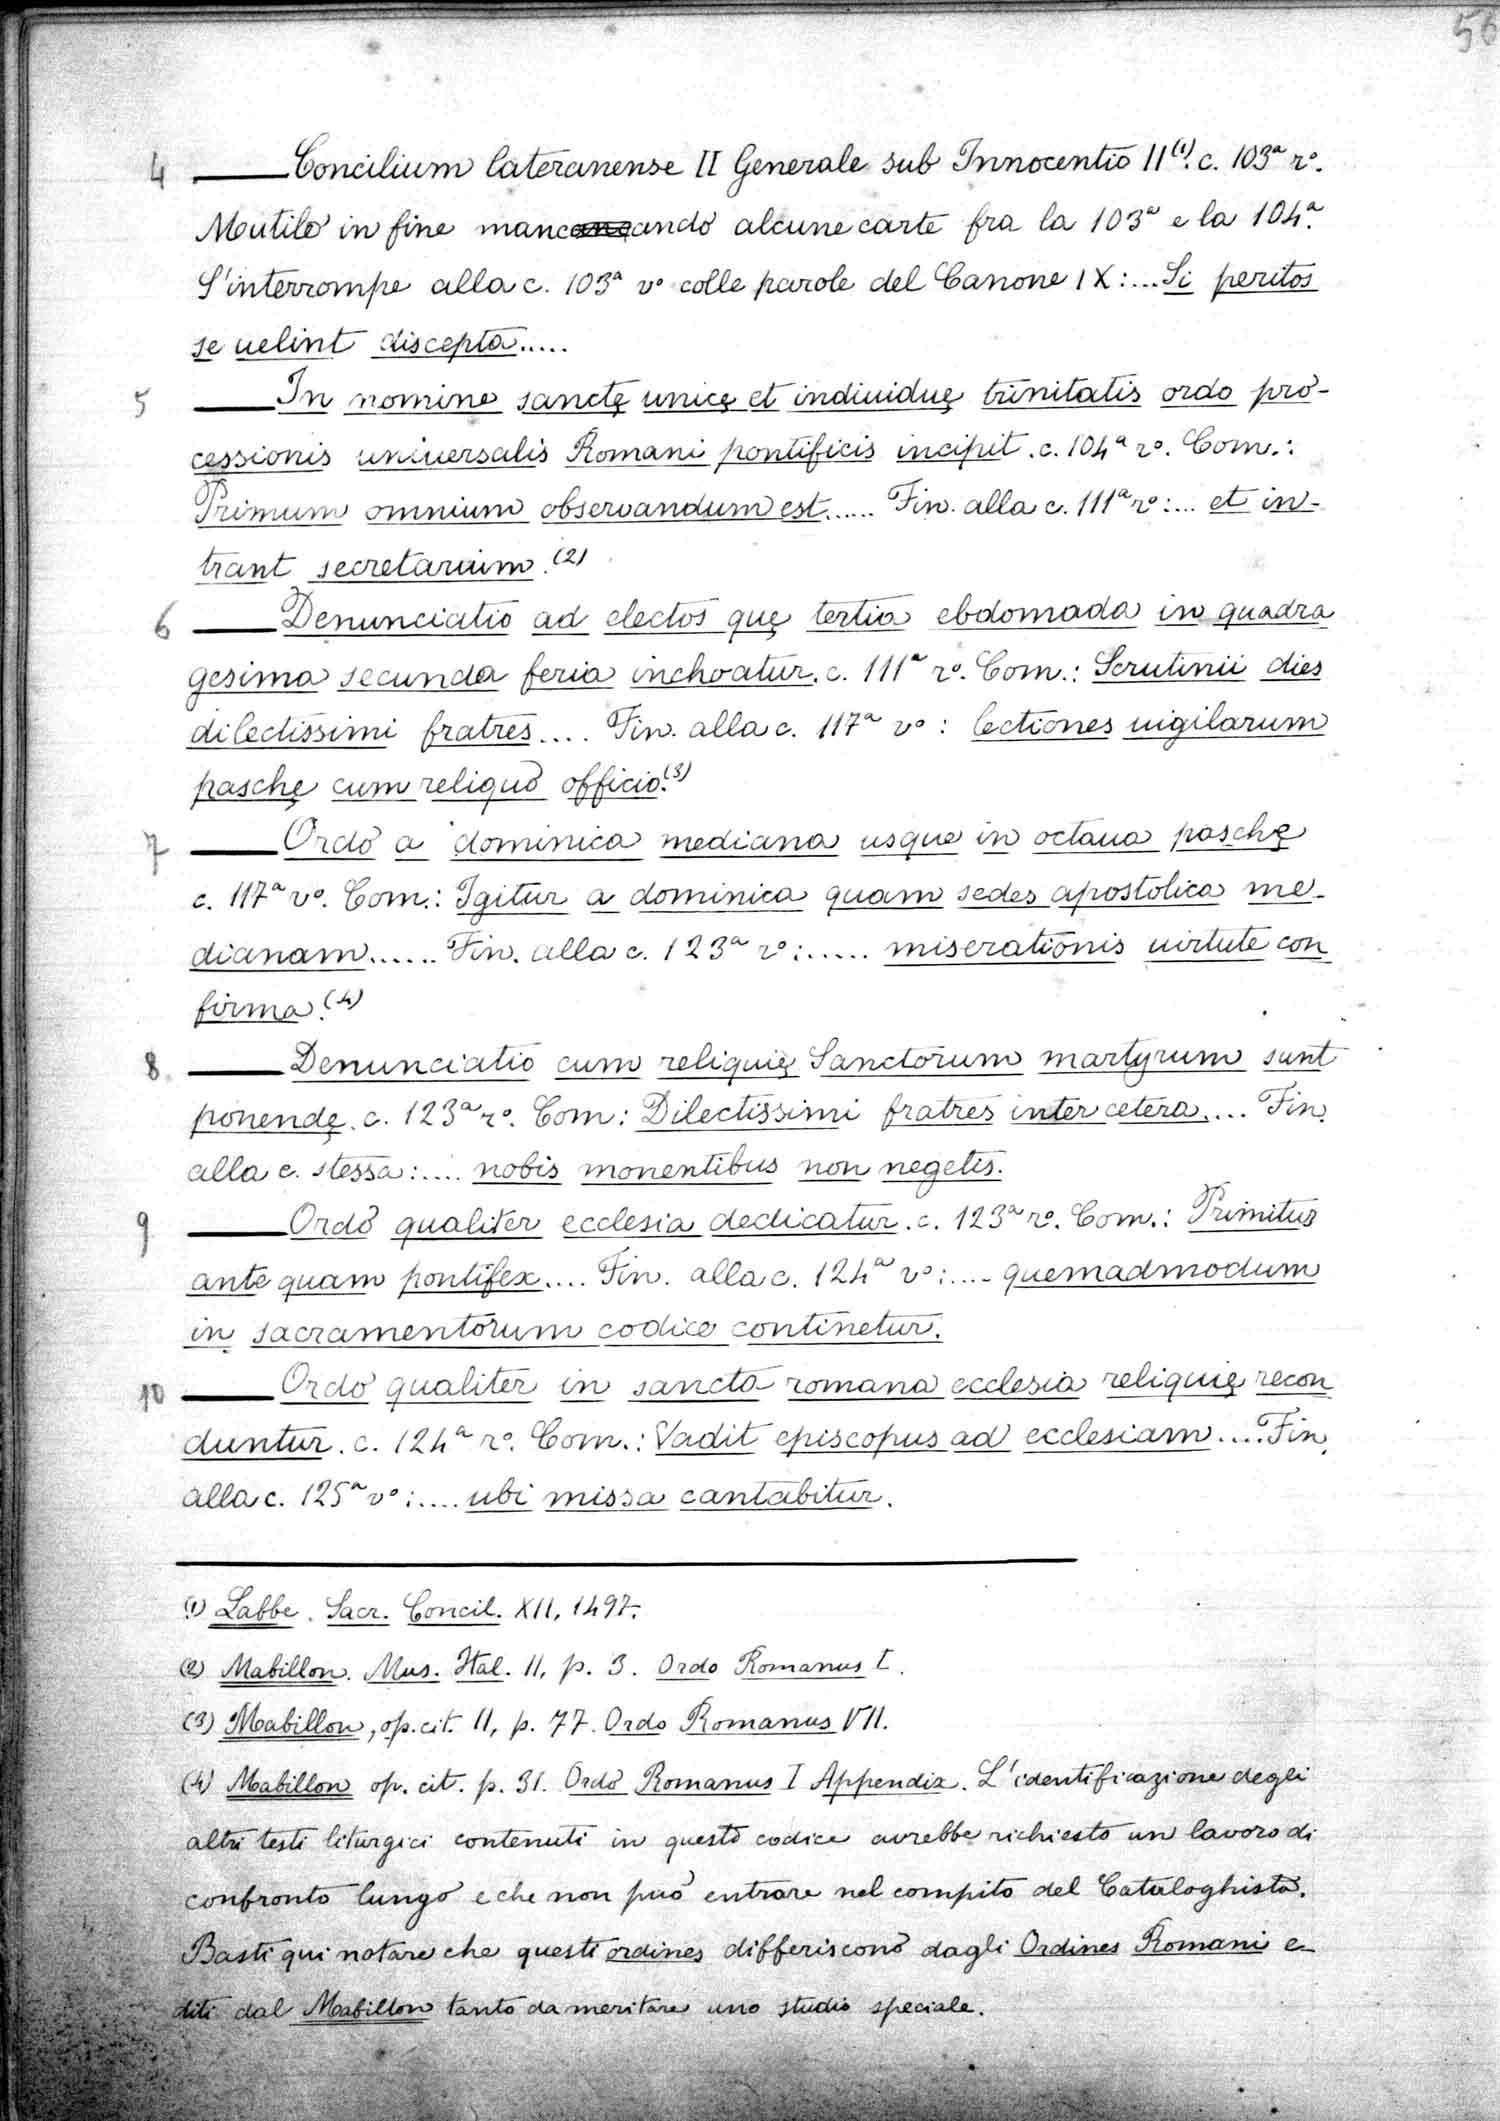 56
4 Concilium lateranense II Generale sub Innocentio II(1). c. 103ª rº.
Mutilo in fine mancando alcune carte fra la 103ª e la 104ª.
S'interrompe alla c. 103ª vº colle parole del Canone IX:... Si peritos
se uelint discepta.....
5 In nomine sanctę unicę et indiuiduę trinitatis ordo pro-
cessionis uniuersalis Romani pontificis incipit. c. 104ª rº. Com.:
Primum omnium observandum est...... Fin. alla c. 111ª rº:... et in-
trant secretarium.(2)
6 Denunciatio ad electos quę tertia ebdomada in quadra
gesima secunda feria inchoatur. c. 111ª rº. Com.: Scrutinii dies
dilectissimi fratres.... Fin. alla c. 117ª vº: lectiones uigilarum
paschę cum reliquo officio.(3)
7 Ordo a dominica mediana usque in octaua paschę
c. 117ª vº. Com.: Igitur a dominica quam sedes apostolica me-
dianam...... Fin. alla c. 123ª rº:..... miserationis uirtute con
firma.(4)
8 Denunciatio cum reliquię Sanctorum martyrum sunt
ponendę. c. 123ª rº. Com: Dilectissimi fratres inter cetera.... Fin.
alla c. stessa:.... nobis monentibus non negetis.
9 Ordo qualiter ecclesia dedicatur. c. 123ª rº. Com.: Primitus
ante quam pontifex.... Fin. alla c. 124ª vº:.... quemadmodum
in sacramentorum codice continetur.
10 Ordo qualiter in sancta romana ecclesia reliquię recon
duntur. c. 124ª rº. Com.: Vadit episcopus ad ecclesiam.... Fin.
alla c. 125ª vº:.... ubi missa cantabitur.
(1) Labbe. Sacr. Concil. XII, 1497.
(2) Mabillon. Mus. Ital. II, p. 3. Ordo Romanus I.
(3) Mabillon, op. cit. II, p. 77. Ordo Romanus VII.
(4) Mabillon op. cit. p. 31. Ordo Romanus I Appendix. L'identificazione degli
altri testi liturgici contenuti in questo codice avrebbe richiesto un lavoro di
confronto lungo e che non può entrare nel compito del Cataloghista.
Basti qui notare che questi ordines differiscono dagli Ordines Romani e-
diti dal Mabillon tanto da meritare uno studio speciale.